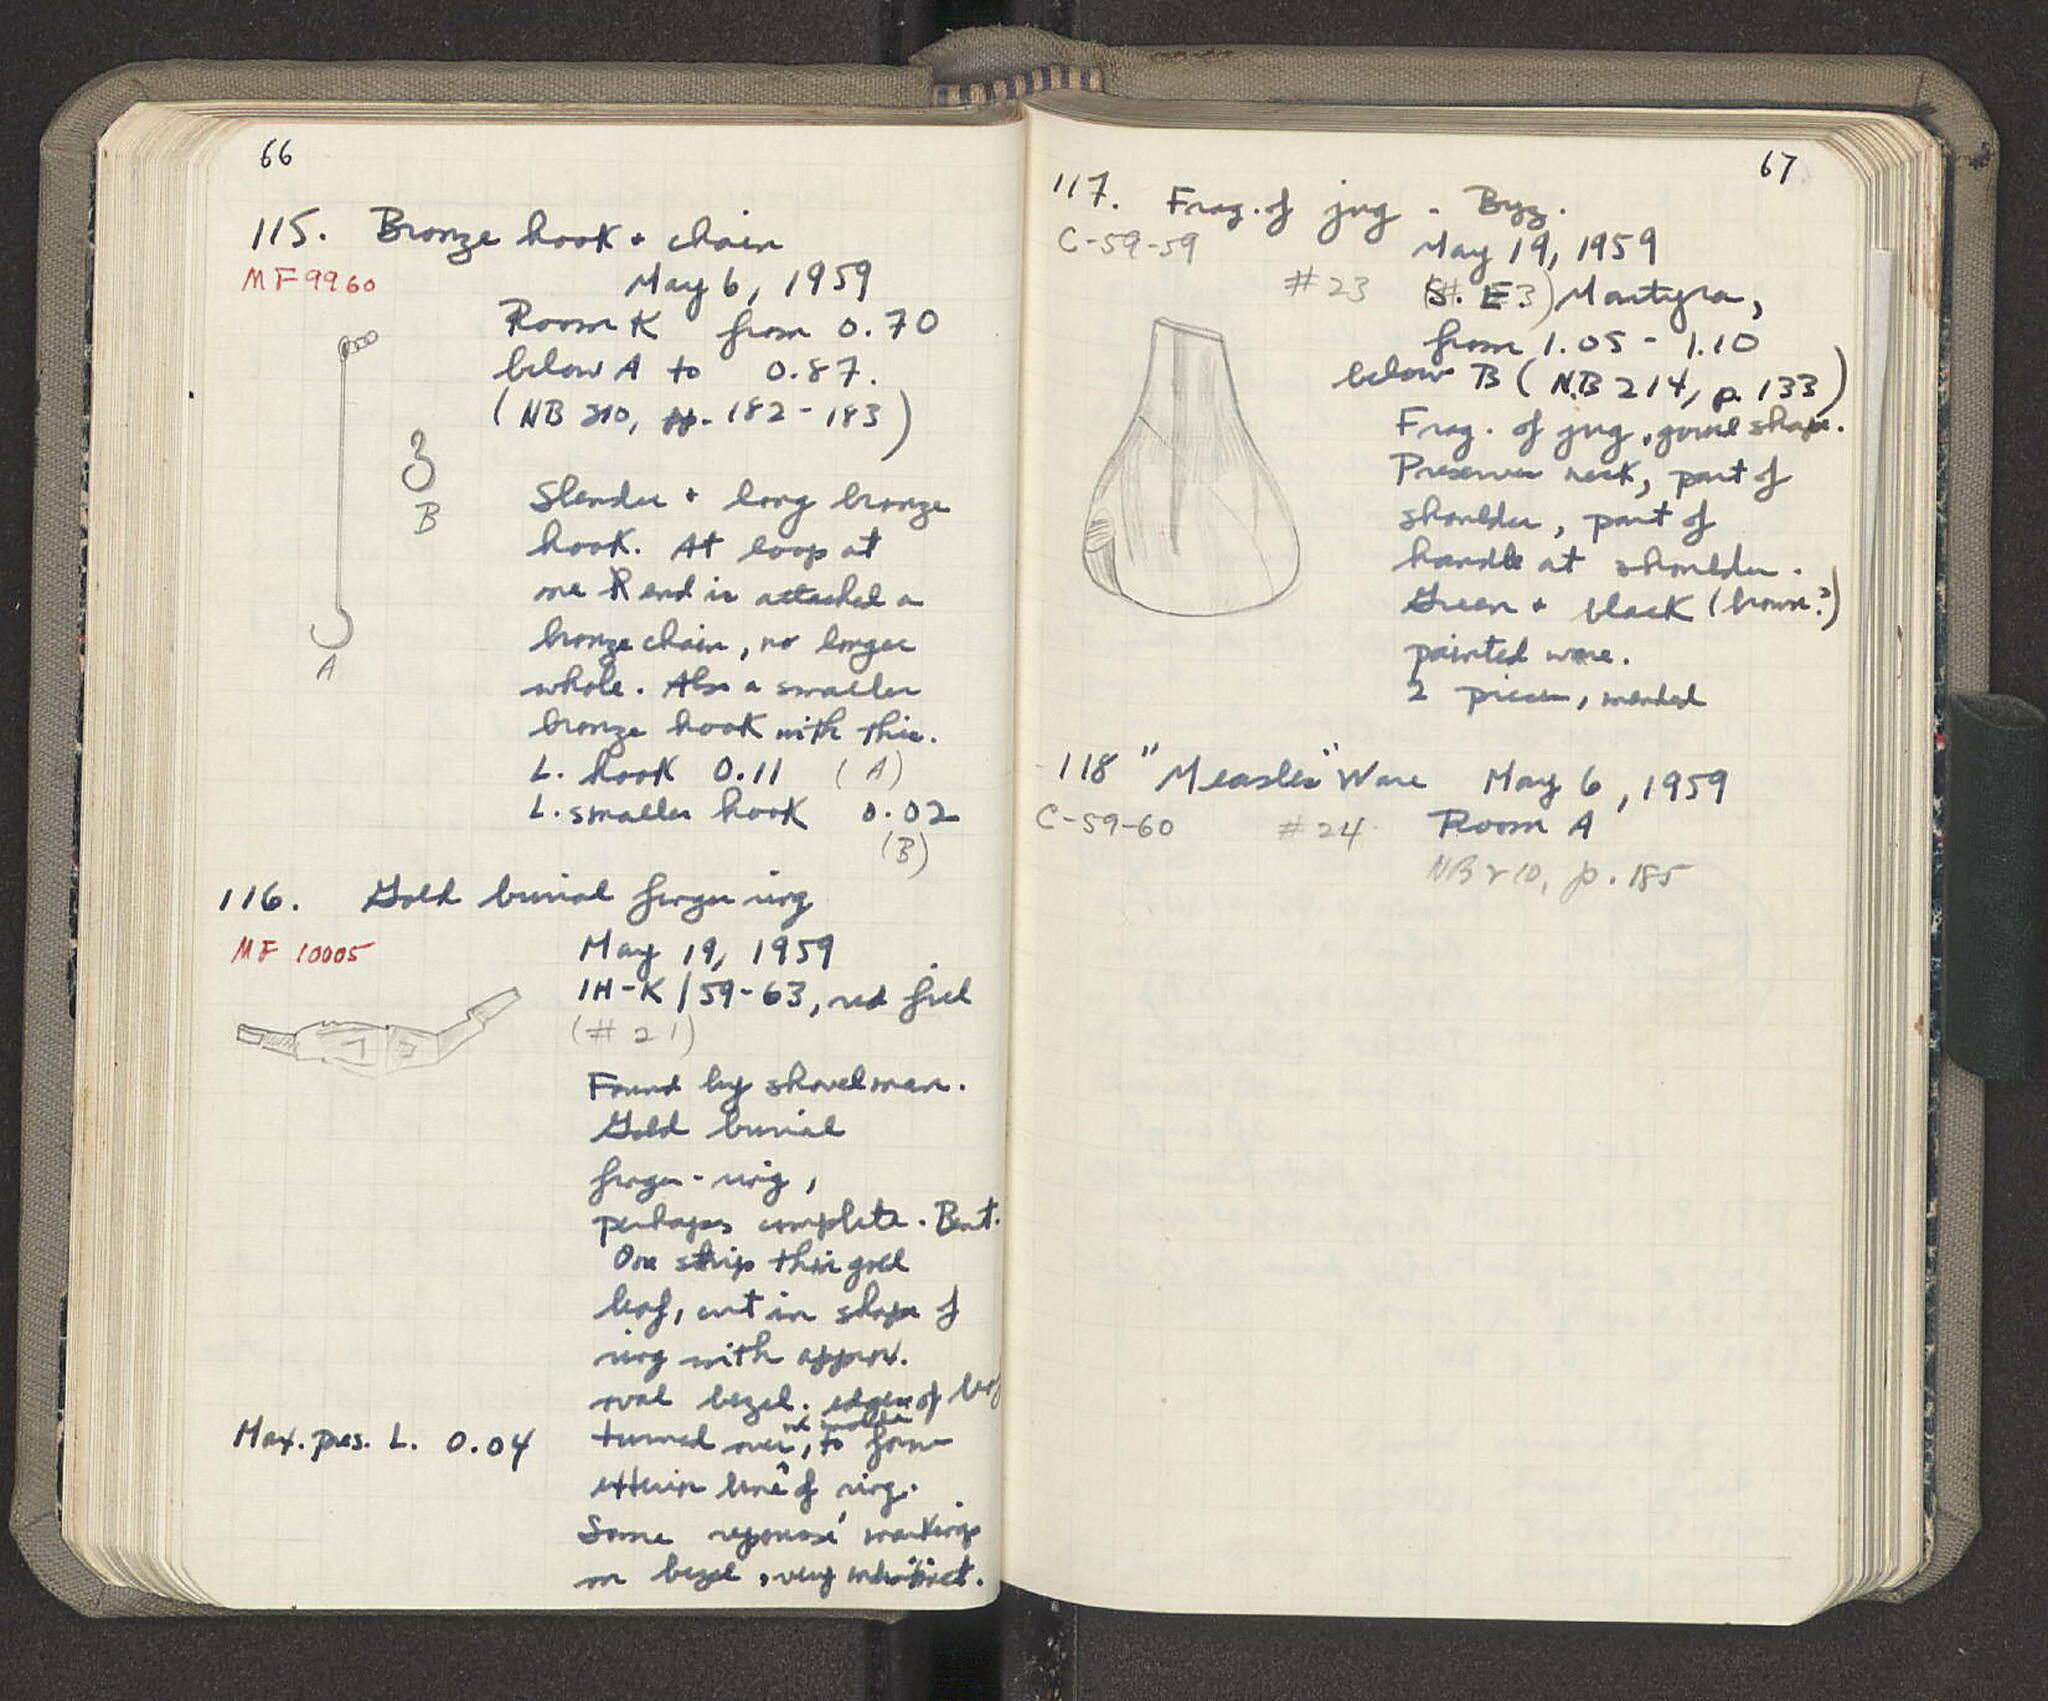 66
115. Bronze hook + chain
MF 9960
May 6, 1959
Room K from 0.70
below A to 0.87.
(NB 210, pp. 182-183)
Slender + long bronze
hook. At loop at
one end is attached a
bronze chain, no longer
whole. Also a smaller
bronze hook with this.
L. hook 0.11 (A)
L. smaller hook 0.02
(B)
A
B
116. Gold burial finger ring
MF 10005
May 19, 1959
1H-K/59-63, red fill
(#21)
Found by shovelman.
Gold burial
finger-ring,
perhaps complete. Bent.
One strip thin gold
leaf, cut in shape of
ring with approx.
oval bezel. edges of leaf
turned over, to form
exterior line of ring.
Some repoussé markings
on bezel, very indistinct.
Max. pres. L. 0.04
67
117. Frag. of jug - Byz.
C-59-59
May 19, 1959
#23 S. E. Martyra,
from 1.05 - 1.10
below B (NB 214, p. 133)
Frag. of jug, gourd shape.
Preserves neck, part of
shoulder, part of
handle at shoulder.
Green + black (brown?)
painted ware.
2 pieces, mended
118 "Measles" Ware May 6, 1959
C-59-60 #24 Room A
NB 210, p. 185